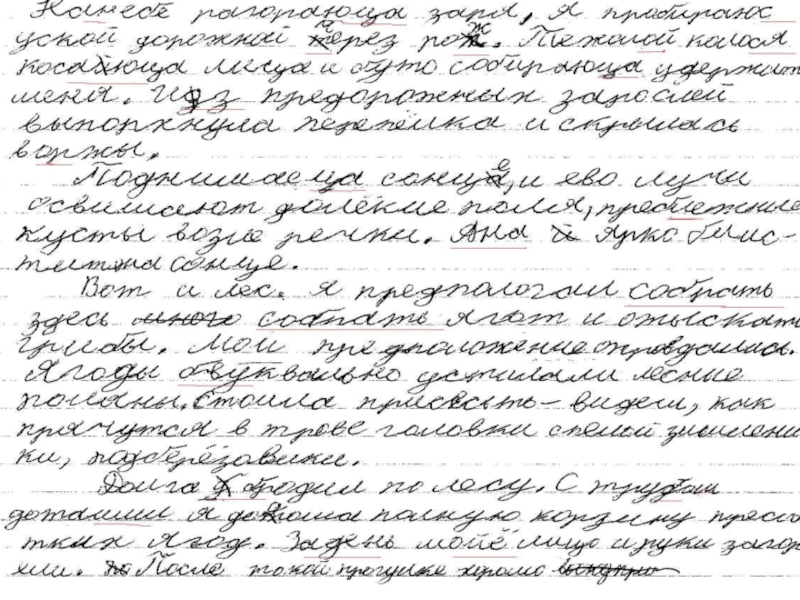 Канебе рагорающа заря, я пробираюс
уской дорожной через рож. Тежолой колося
косаююца лица и буто собирающа удержат
меня. Из предорожных зарослей
выпорхнула перепёлка и скрылась
воржы.
Поднимаеца сонце, и ево лучи
освищают далёкие поля, преблежние
кусты возле речки. Ана ярко блис-
тит на сонце.
Вот и лес. Я предпалогал собрать
здесь много собрать ягот и отыскать
грибы. Мои предположение оправдалась.
Ягоды буквально устилали лесние
поляны. Стоила присесть - видеш, как
прячутся в траве головки спелой
ки, подберёзавики.
Долга я бродил по лесу. С трудам
доташил я до дома полную корзину
тких ягод. За день моиё лицо и руки загор
ели. После такой прогулке харашо